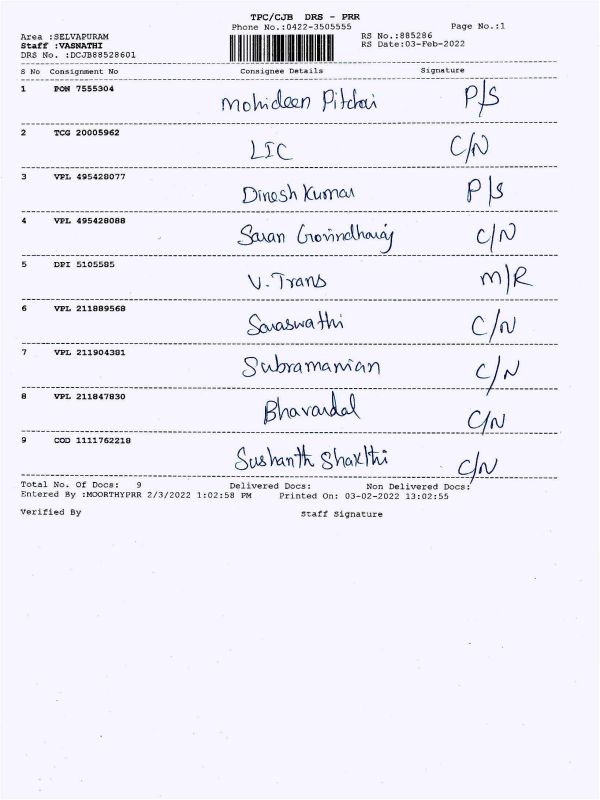 TPC/CJB DRS - PRR
Phone No.:0422-3505555 Page No.:1
Area :SELVAPURAM RS No.:885286
Staff :VASNATHI RS Date:03-Feb-2022
DRS No. :DCJB88528601
S No Consignment No Consignee Details Signature
1 PON 7555304 Mohideen Pitchai P/S
2 TCG 20005962 LIC C/N
3 VPL 495428077 Dinesh Kumar P/S
4 VPL 495428088 Saran Govindharaj C/N
5 DPI 5105585 V. Trans M/R
6 VPL 211889568 Saraswathi C/N
7 VPL 211904381 Subramanian C/N
8 VPL 211847830 C/N
9 COD 1111762218 Sushanth Shakthi C/N
Total No. Of Docs: 9 Delivered Docs: Non Delivered Docs:
Entered By :MOORTHYPRR 2/3/2022 1:02:58 PM Printed On: 03-02-2022 13:02:55
Verified By Staff Signature